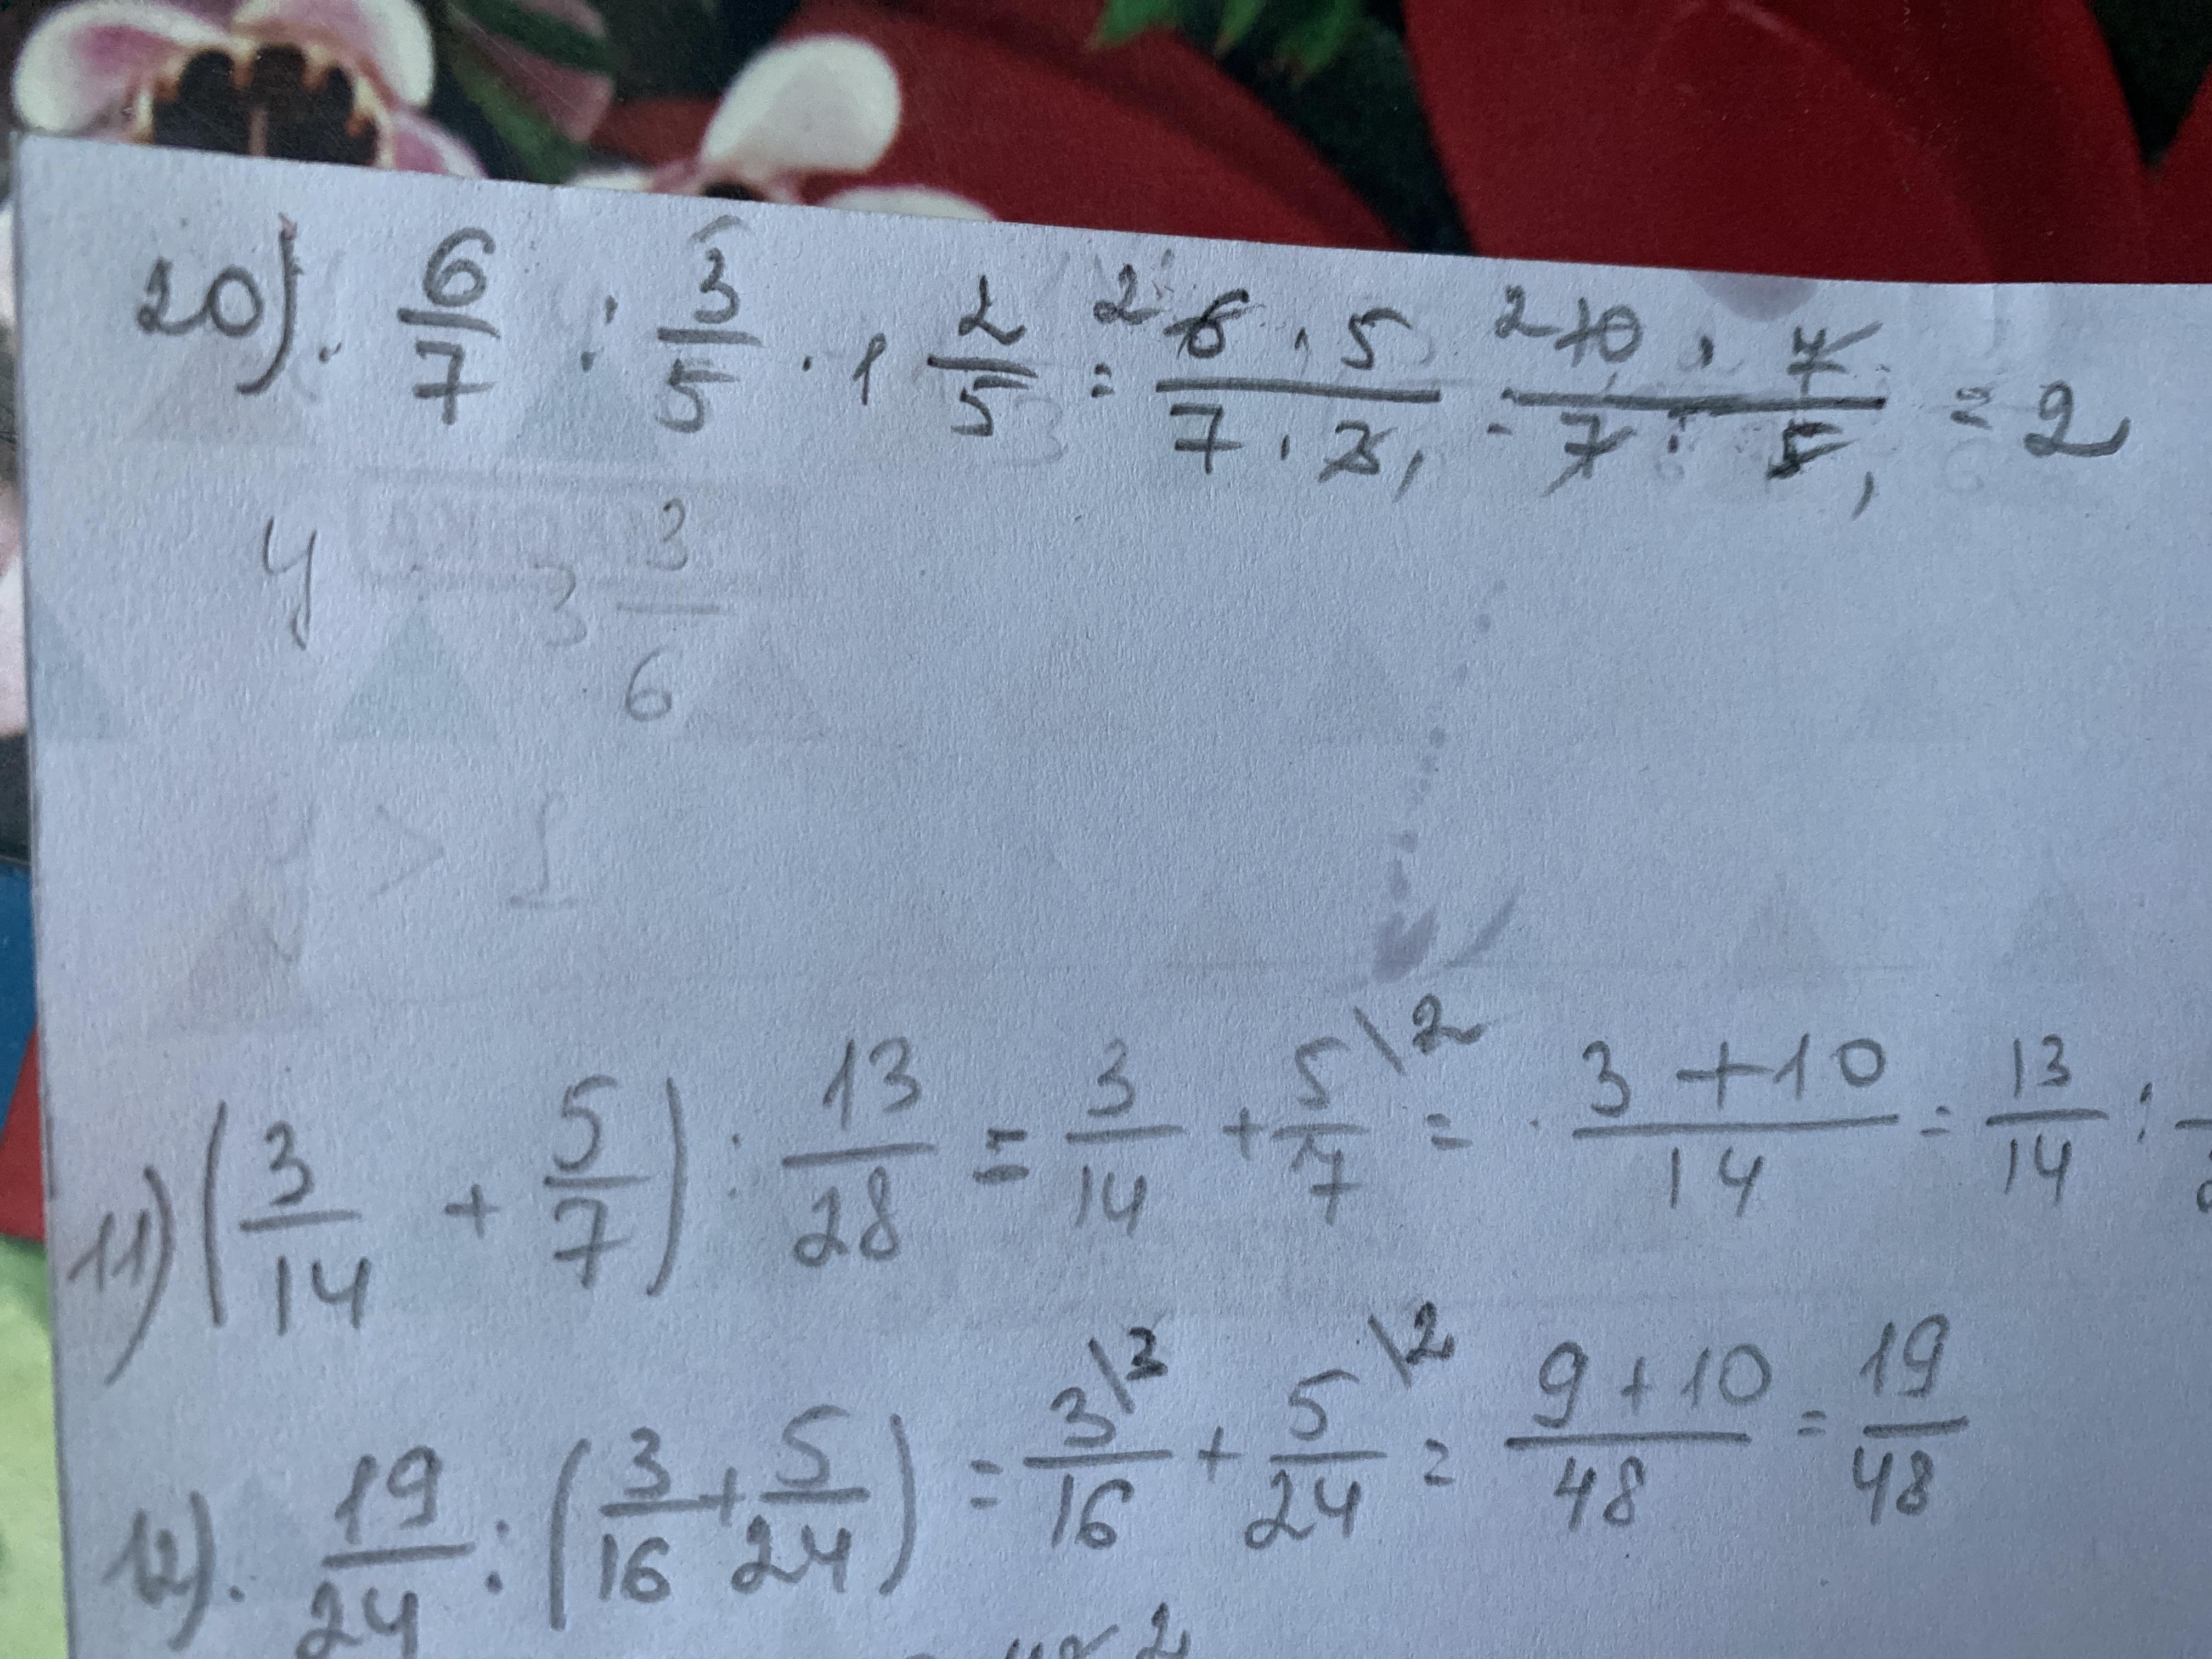 20). 6/7 : 3/5 · 1 2/5 = ²6 · 5 / 7 · 3₁ = ²10 · 7 / 7 · 5₁ = 2
y 3 3/6
y > 1
11) (3/14 + 5/7) : 13/28 = 3/14 + 5/7\2 = 3 + 10 / 14 = 13/14 :
12). 19/24 : (3/16 + 5/24) = 3\3/16 + 5\2/24 = 9 + 10 / 48 = 19/48